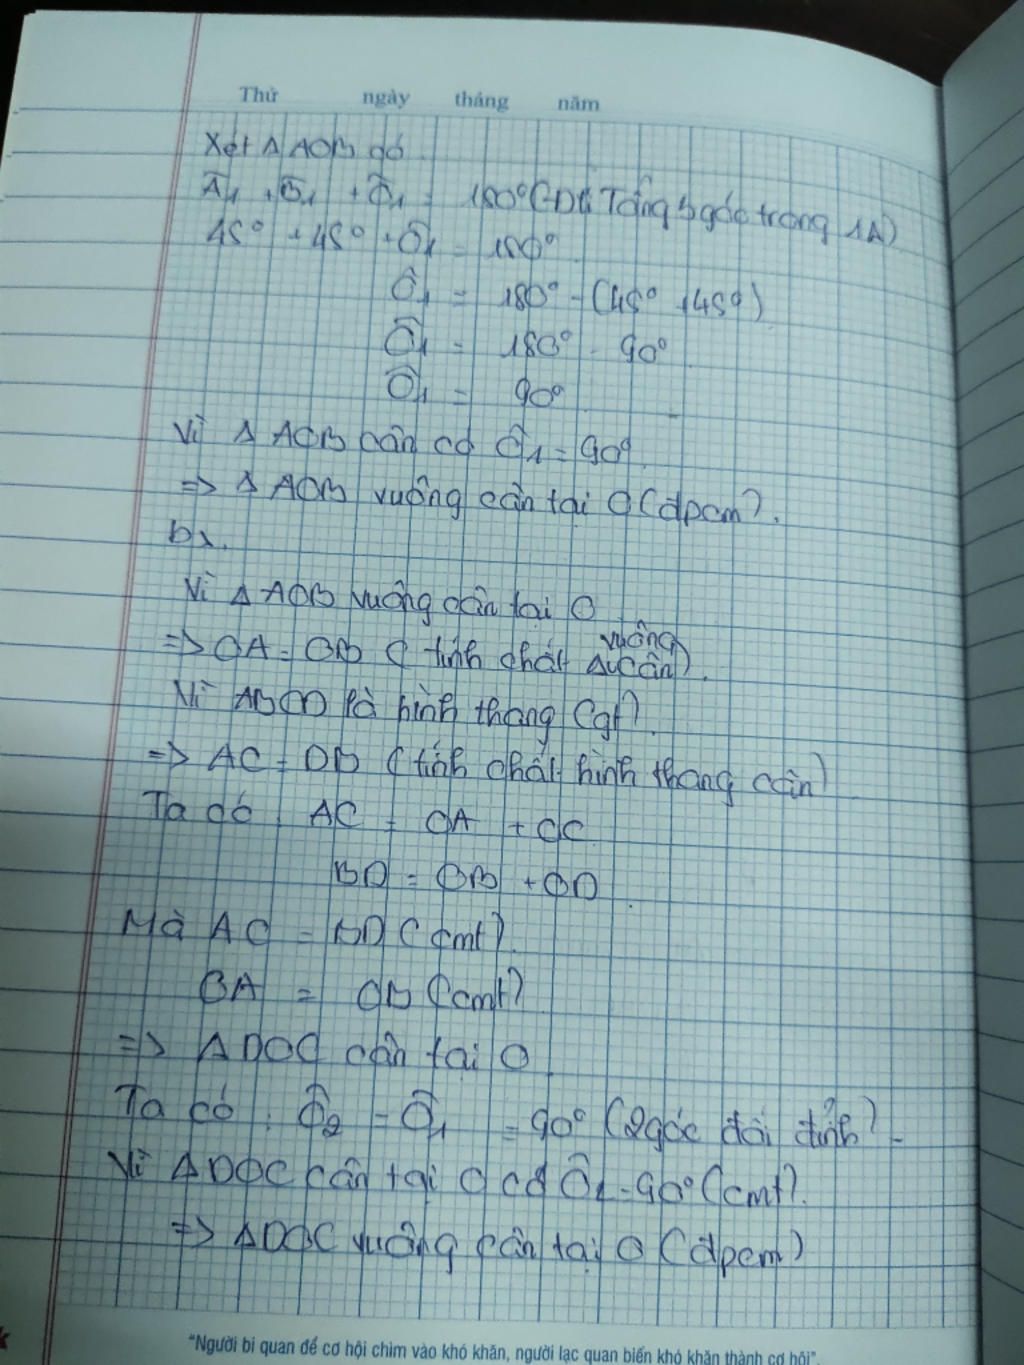 Thứ ngày tháng năm
Xét Δ AOB có
Â₁ + B̂₁ + Ô₁ = 180° (ĐL Tổng 3 góc trong 1Δ)
45° + 45° + Ô₁ = 180°
Ô₁ = 180° - (45° + 45°)
Ô₁ = 180° - 90°
Ô₁ = 90°
Vì Δ AOB cân có Ô₁ = 90°
=> Δ AOB vuông cân tại O (đpcm).
b).
Vì Δ AOB vuông cân tại O
=> OA = OB (tính chất Δ vuông cân).
Vì ABCD là hình thang (gt).
=> AC = DB (tính chất hình thang cân)
Ta có: AC = OA + OC
BD = OB + OD.
Mà AC = BD (cmt).
OA = OB (cmt)
=> Δ DOC cân tại O.
Ta có: Ô₂ = Ô₁ = 90° (2 góc đối đỉnh).
Vì Δ DOC cân tại O có Ô₂ = 90° (cmt).
=> Δ DOC vuông cân tại O (đpcm)
"Người bi quan để cơ hội chìm vào khó khăn, người lạc quan biến khó khăn thành cơ hội".